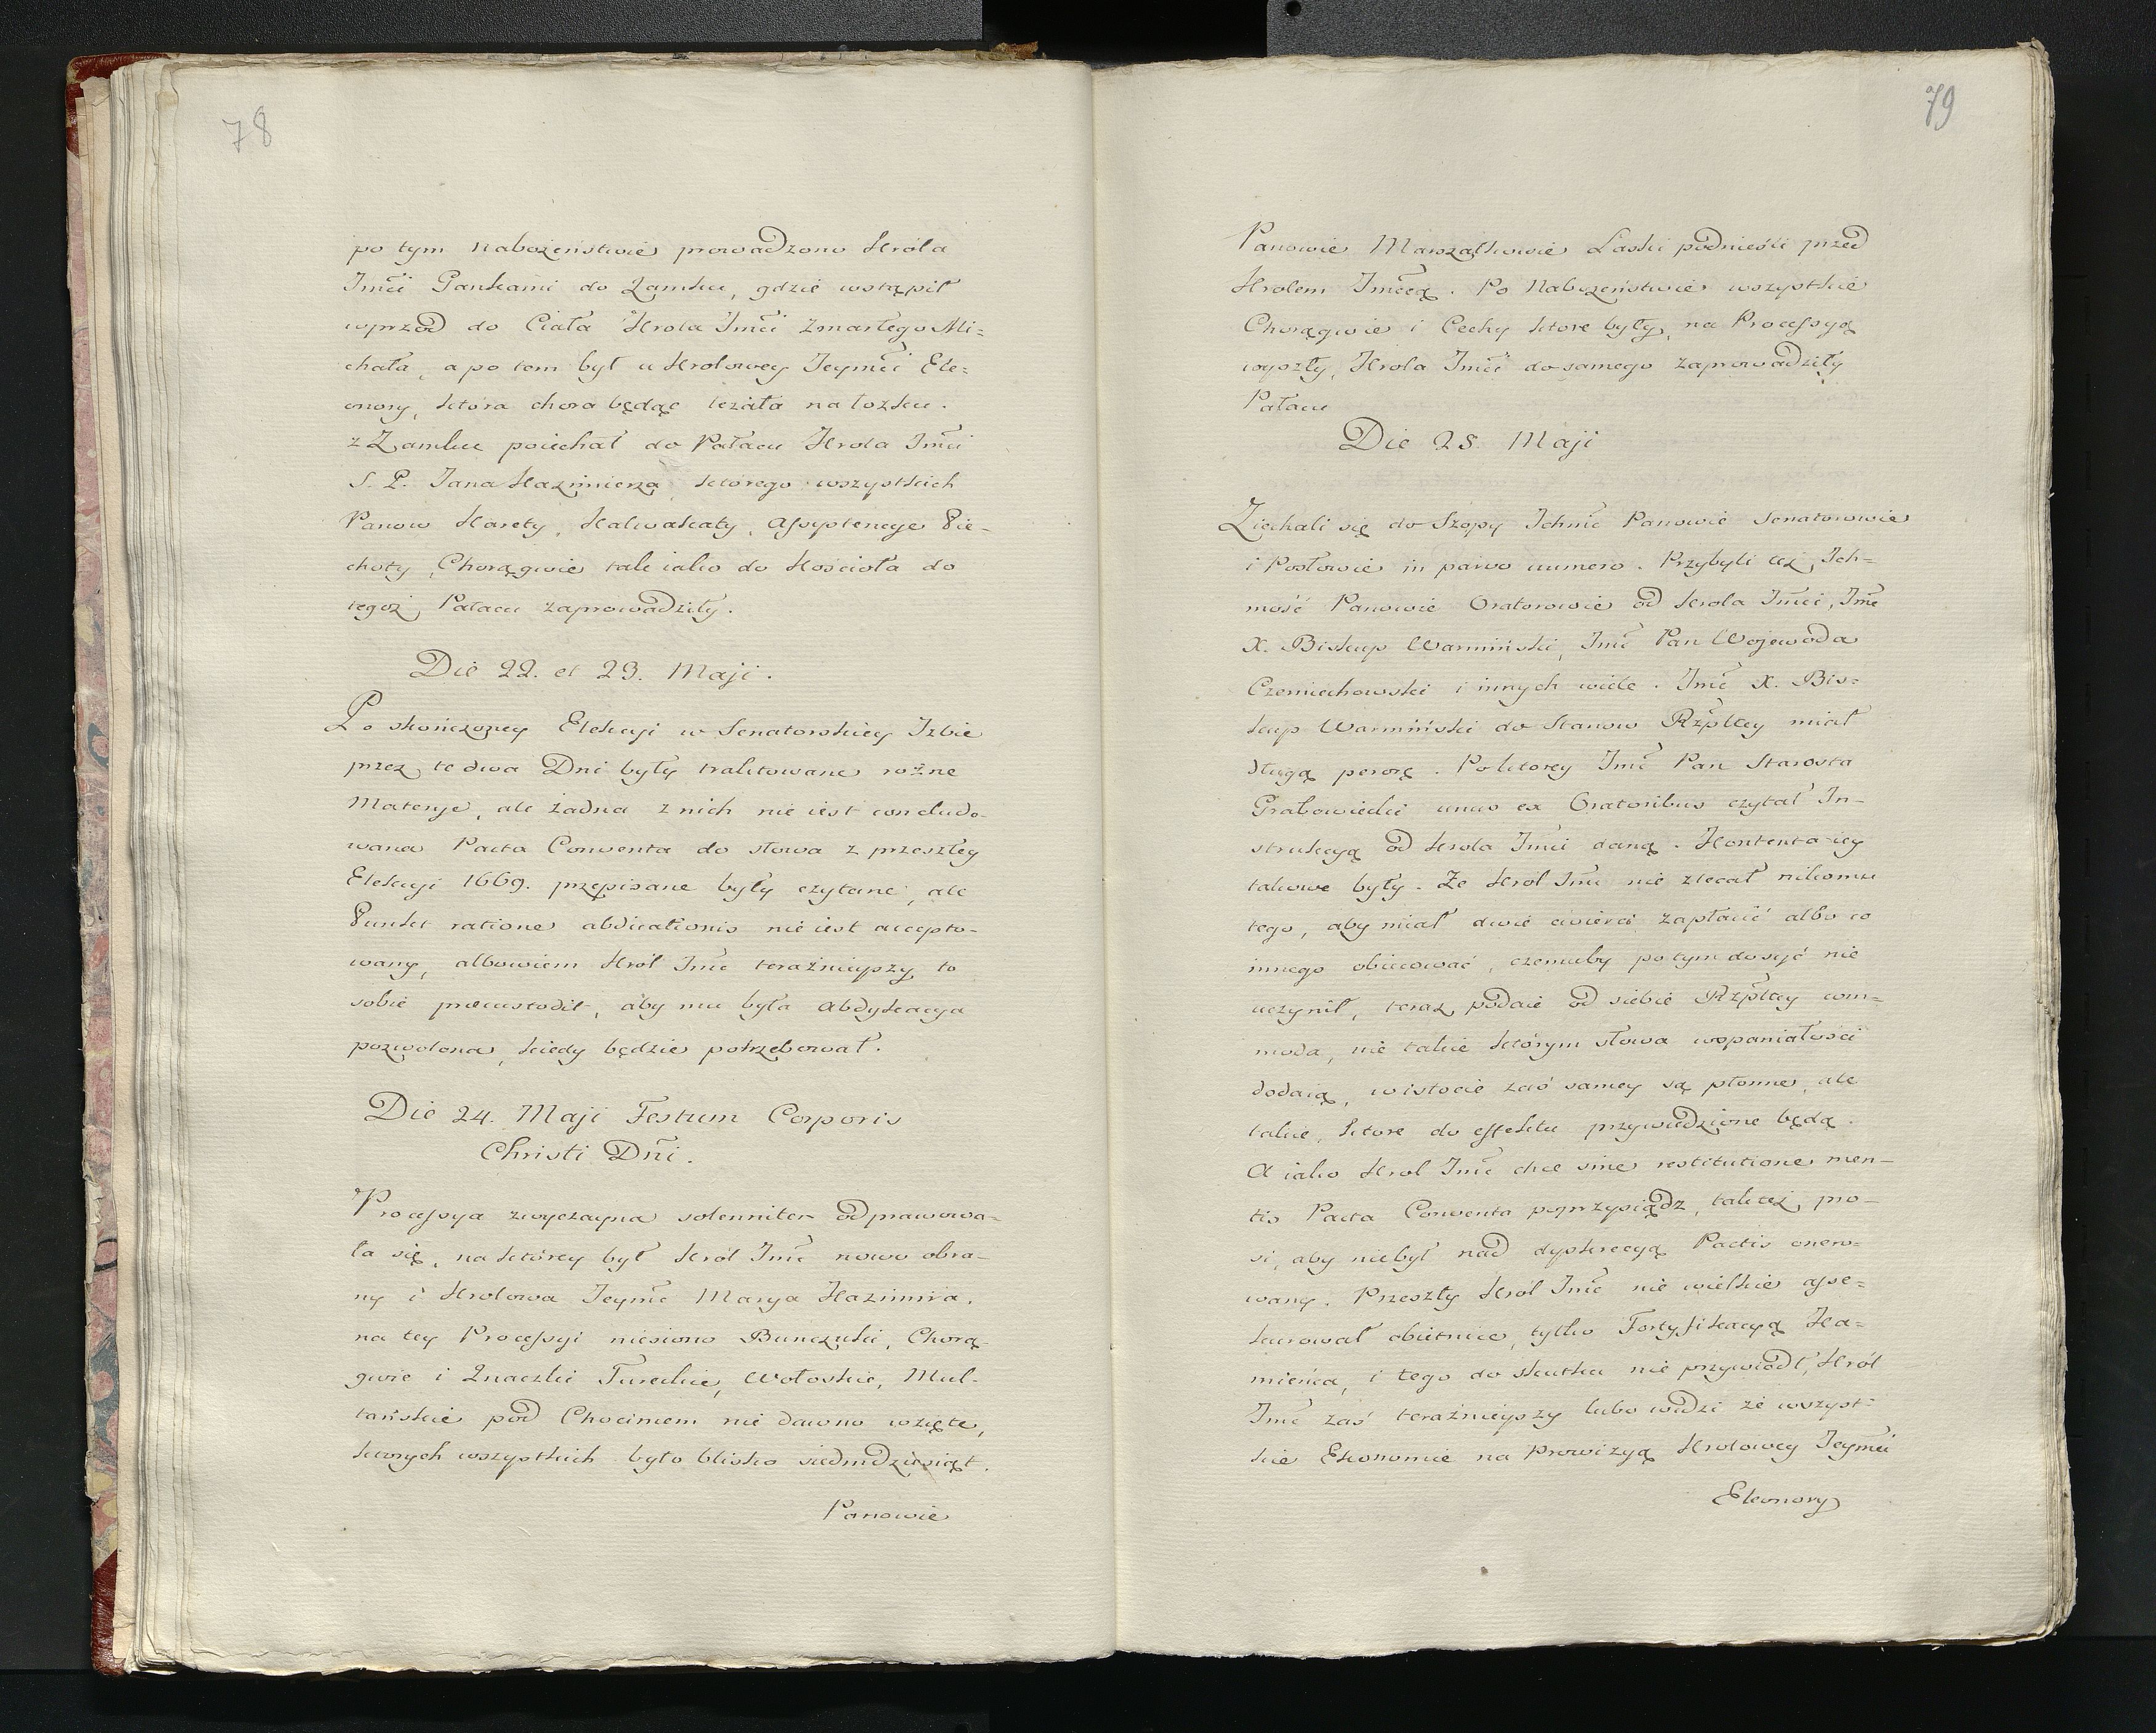 78
po tym nabożeństwie prowadzono Króla
Jmći Gankami do Zamku, gdzie wstąpił
wprzod do Ciała Krola Jmći zmarłego Mi=
chała, a po tem był u Krolowey Jeymći Ele=
onory, która chora będąc leżała na łozku.
z Zamku poiechał do Pałacu Krola Jmći
S. P. Jana Kazimierza którego wszystkich
Panow Karety, Kalwakaty, Assystencye Pie-
choty, Chorągwie tak iako do Kościoła do
tegoż Pałacu zaprowadziły.
Die 22. et 23. Maji.
Po skończoney Elekcyi w Senatorskiey Izbie
przez te dwa Dni były traktowane rożne
Materye, ale żadna z nich nie iest concludo-
wana Pacta Conventa do słowa z przeszłey
Elekcyi 1669. przepisane były czytane, ale
Punkt ratione abdicationis nie iest accepto-
wany, albowiem Król Jmć teraźnieyszy to
sobie praecustodit, aby mu była Abdykacya
pozwolona, kiedy będzie potrzebował.
Die 24. Maji Festum Corporis
Christi Dñi.
Processya zwyczayna solenniter odprawowa-
ła się, na którey był Król Jmć nowo obra-
ny i Krolowa Jeymć Marya Kazimira.
na tey Processyi niesiono Bunczuki, Chorą-
gwie i Znaczki Tureckie, Wołoskie, Mul-
tańskie pod Chocimem nie dawno wzięte,
ktorych wszystkich było blisko siedmdziesiąt.
Panowie
79
Panowie Marszałkowie Laski podnieśli przed
Krolem Jmćcą. Po Nabożeństwie wszystkie
Chorągwie i Cechy ktore były, na Processyą
wyszły, Krola Jmći do samego zaprowadziły
Pałacu
Die 25. Maji
Ziechali się do Szopy Ichmć Panowie Senatorowie
i Posłowie in parvo numero. Przybyli też Ich=
mość Panowie Oratorowie od Krola Jmći, Jmć
X. Biskup Warmiński, Jmć Pan Wojewoda
Czerniechowski i innych wiele. Jmć X. Bis=
kup Warmiński do Stanow Rzpltey miał
długą perorę. Po ktorey Jmć Pan Starosta
Grabowiecki unus ex Oratoribus czytał In-
strukcyą od Krola Jmći daną. Kontenta iey
takowe były. Że Krol Jmć nie zlecał nikomu
tego, aby miał dwie cwierci zapłacić albo co
innego obiecować, czemuby po tym dosyć nie
uczynił, teraz podaie od siebie Rzpltey com=
moda, nie takie którym słowa wspaniałości
dodaią, w istocie zaś samey są płonne, ale
takie, ktore do effektu przywiedzione będą.
A iako Krol Jmć chce sine restitutione men-
tis Pacta Conventa poprzysiądz, tak też pro-
si, aby nie był nad dyskrecyą Pactis onero=
wany. Przeszły Król Jmć nie wielkie asse=
kurował obietnice, tylko Fortyfikacyą Ka=
mieńca, i tego do skutku nie przywiodł, Król
Jmć zaś teraźnieyszy lubo widzi że wszyst=
kie Ekonomie na Prowizyą Krolowey Jeymći
Eleonory